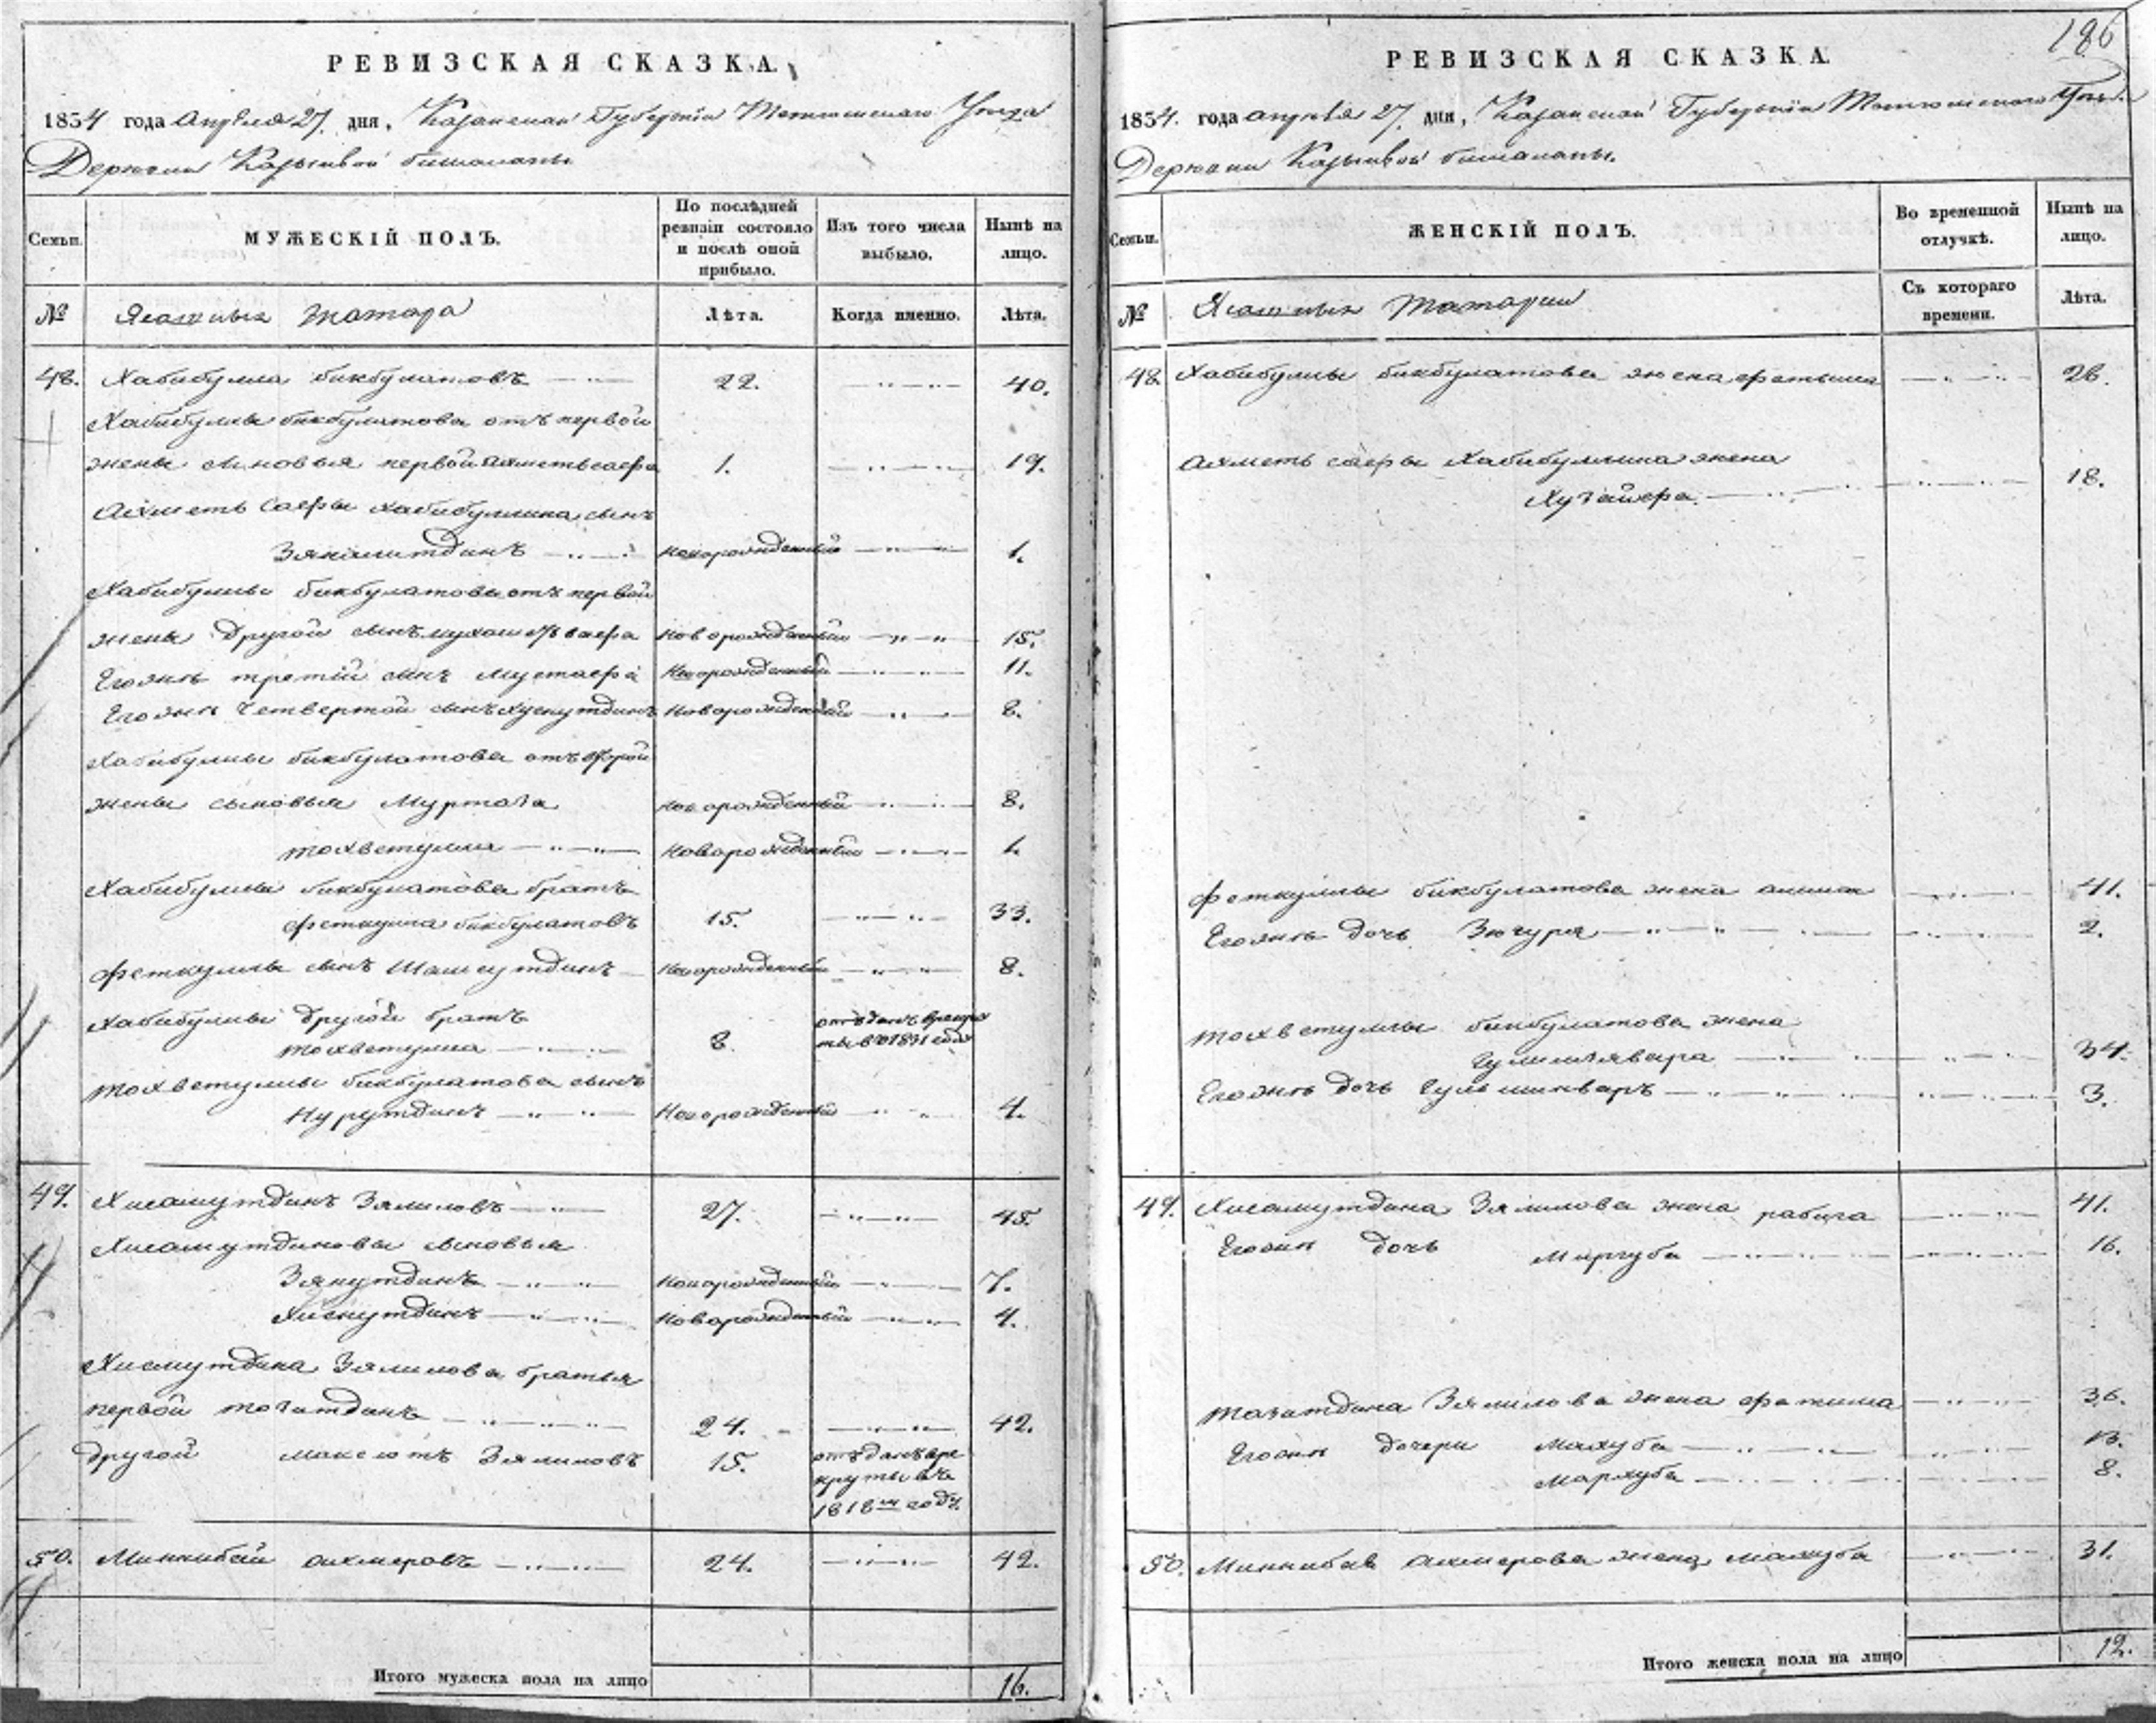 РЕВИЗСКАЯ СКАЗКА.
1834 года Апреля 27. дня, Казанской Губернiи Тетюшскаго Уезда
Деревни
Семьи.
МУЖЕСКIЙ ПОЛЪ.
По послѣдней ревизiи состояло и послѣ оной прибыло.
Изъ того числа выбыло.
Нынѣ на лицо.
№
Ясашныя татара
Лѣта.
Когда именно.
Лѣта.
48. Хабибулла бикбулатовъ 22. 40.
Хабибуллы бикбулатова отъ первой
жены сыновья первой Ахметьсафа 1. 19.
Ахметь Сафы хабибуллина сынъ
новорожденный 1.
Хабибуллы бикбулатова отъ первой
жены другой сынъ новорожденный 15.
Егожъ третiй сынъ Мустафа новорожденный 11.
Егожъ четвертой сынъ новорожденный 8.
Хабибуллы бикбулатова отъ второй
жены сыновья Муртаза новорожденный 8.
тохветулла новорожденный 1.
Хабибуллы бикбулатова братъ
феткулла бикбулатовъ 15. 33.
феткуллы сынъ Шамсутдинъ новорожденный 8.
Хабибуллы другой братъ
тохветулла 8. отъданъ врекруты в 1831 году
тохветуллы бикбулатова сынъ
Нурутдинъ новорожденный 4.
49. Хисамутдинъ Зялиловъ 27. 45.
Хисамутдиновы сыновья
Зянутдинъ новорожденный 7.
Хиснутдинъ новорожденный 4.
Хисамутдина Зялилова братья
первой тозитдинъ 24. 42.
другой максютъ Зялиловъ 15. отъданъ вре
круты въ
1818м году.
50. Миннибай ахмеровъ 24. 42.
Итого мужеска пола на лицо 16.
186
РЕВИЗСКАЯ СКАЗКА.
1834. года апреля 27. дня, Казанской Губернiи Тетюшскаго Уезда
Деревни
Семьи.
ЖЕНСКIЙ ПОЛЪ.
Во временной отлучкѣ.
Нынѣ на лицо.
№
Ясашныя татарки
Съ котораго времени.
Лѣта.
48. Хабибуллы бикбулатова жена 26.
Ахметь сафы Хабибуллина жена
18.
феткуллы бикбулатова жена 41.
Егожъ дочь Зюгура 2.
тохветуллы бикбулатова жена
34.
Егожъ дочь 3.
49. Хисамутдина Зялилова жена рабига 41.
Егожъ дочь Маргуба 16.
тозитдина Зялилова жена фатима 36.
Егожъ дочери Махуба 13.
Мархуба 8.
50. Миннибая ахмерова жена махуба 31.
Итого женска пола на лицо 12.